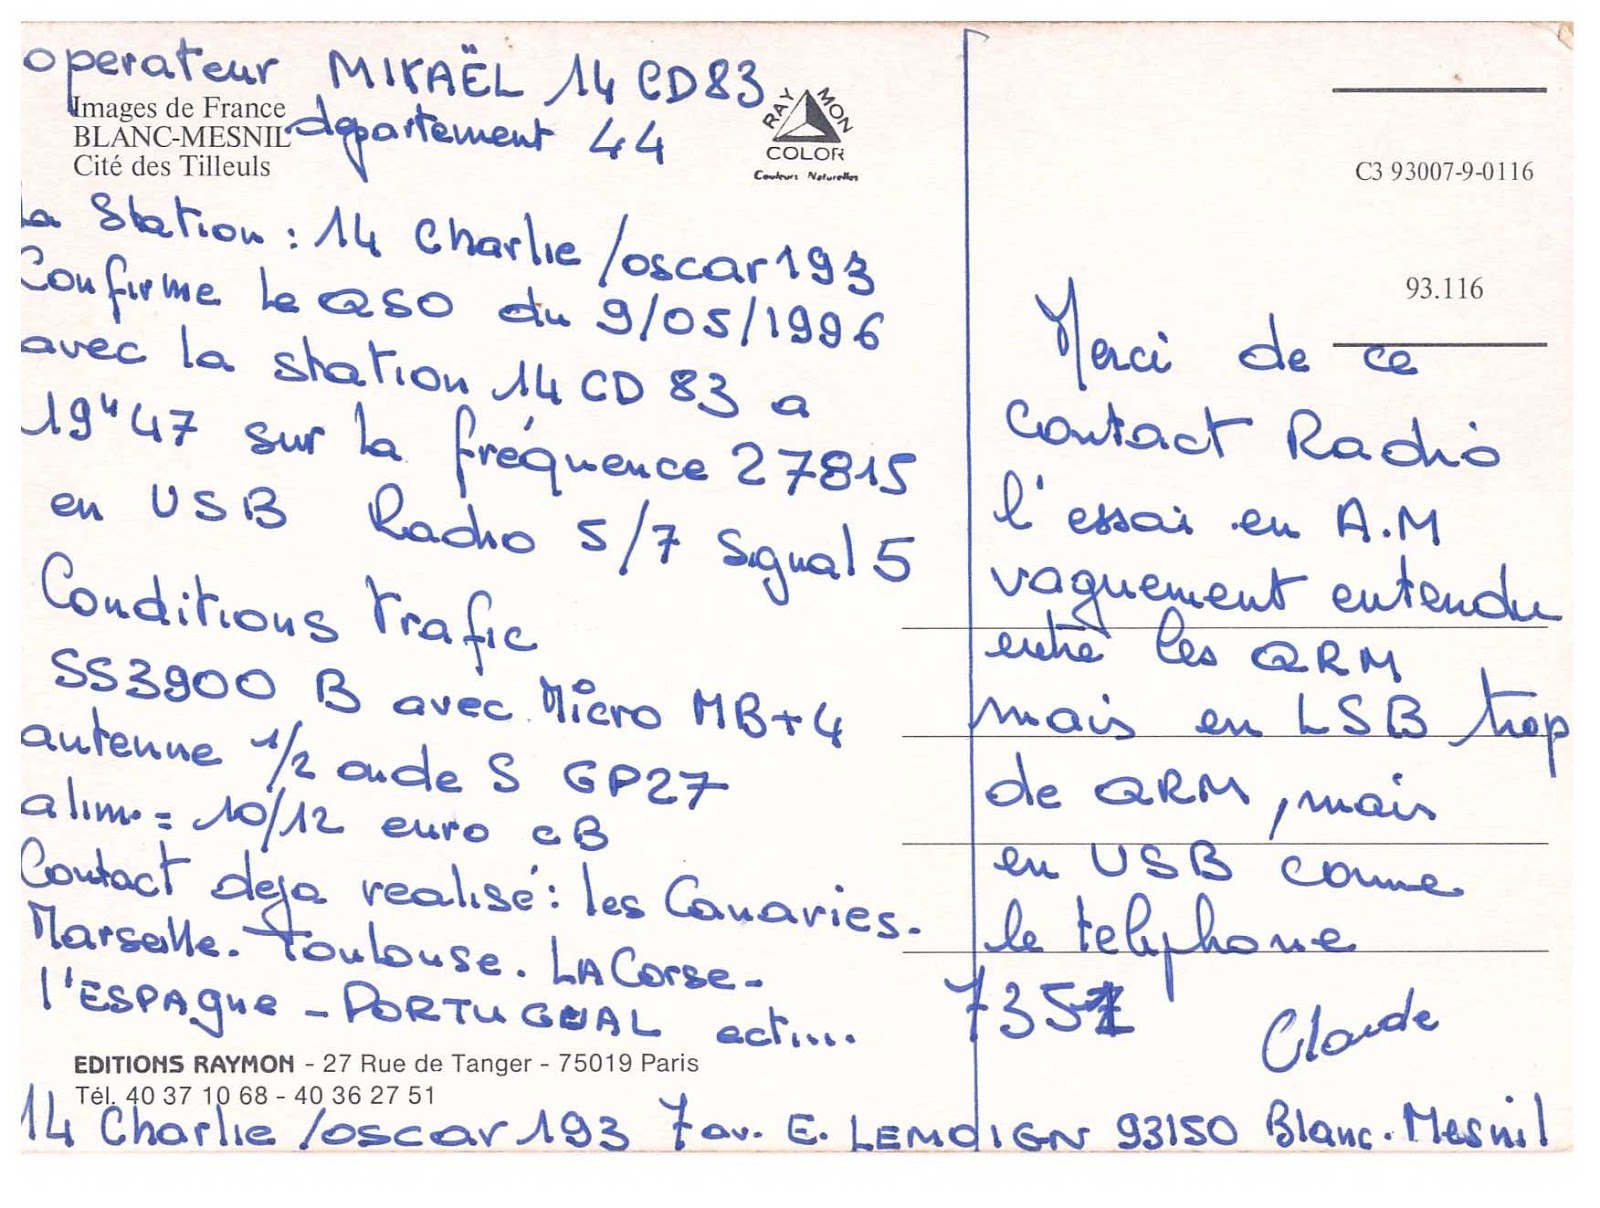 operateur MIKAËL 14 CD83
Images de France
BLANC-MESNIL
Cité des Tilleuls
departement 44
RAYMON
COLOR
Couleurs Naturelles
la Station : 14 Charlie /oscar 193
Confirme le QSO du 9/05/1996
avec la station 14 CD 83 a
19H47 sur la fréquence 27815
en USB Radio 5/7 Signal 5
Conditions trafic
SS3900 B avec Micro MB+4
antenne 1/2 onde S GP27
alim. = 10/12 euro CB
Contact deja realisé : les Canaries.
Marseille. Toulouse. LA Corse-
l'ESPAgne - PORTUGUAL ect....
EDITIONS RAYMON - 27 Rue de Tanger - 75019 Paris
Tél. 40 37 10 68 - 40 36 27 51
14 Charlie /oscar 193 7 av. E. LEMOIGN 93150 Blanc-Mesnil
C3 93007-9-0116
93.116
Merci de ce
Contact Radio
l'essai en A.M
vaguement entendu
entre les QRM
mais en LSB trop
de QRM, mais
en USB comme
le telephone
7351
Claude